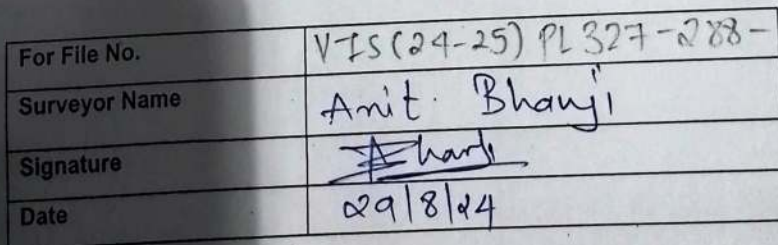 For File No. VIS(24-25) PL327-288-
Surveyor Name Anit. Bhanji
Signature
Date 29/8/24